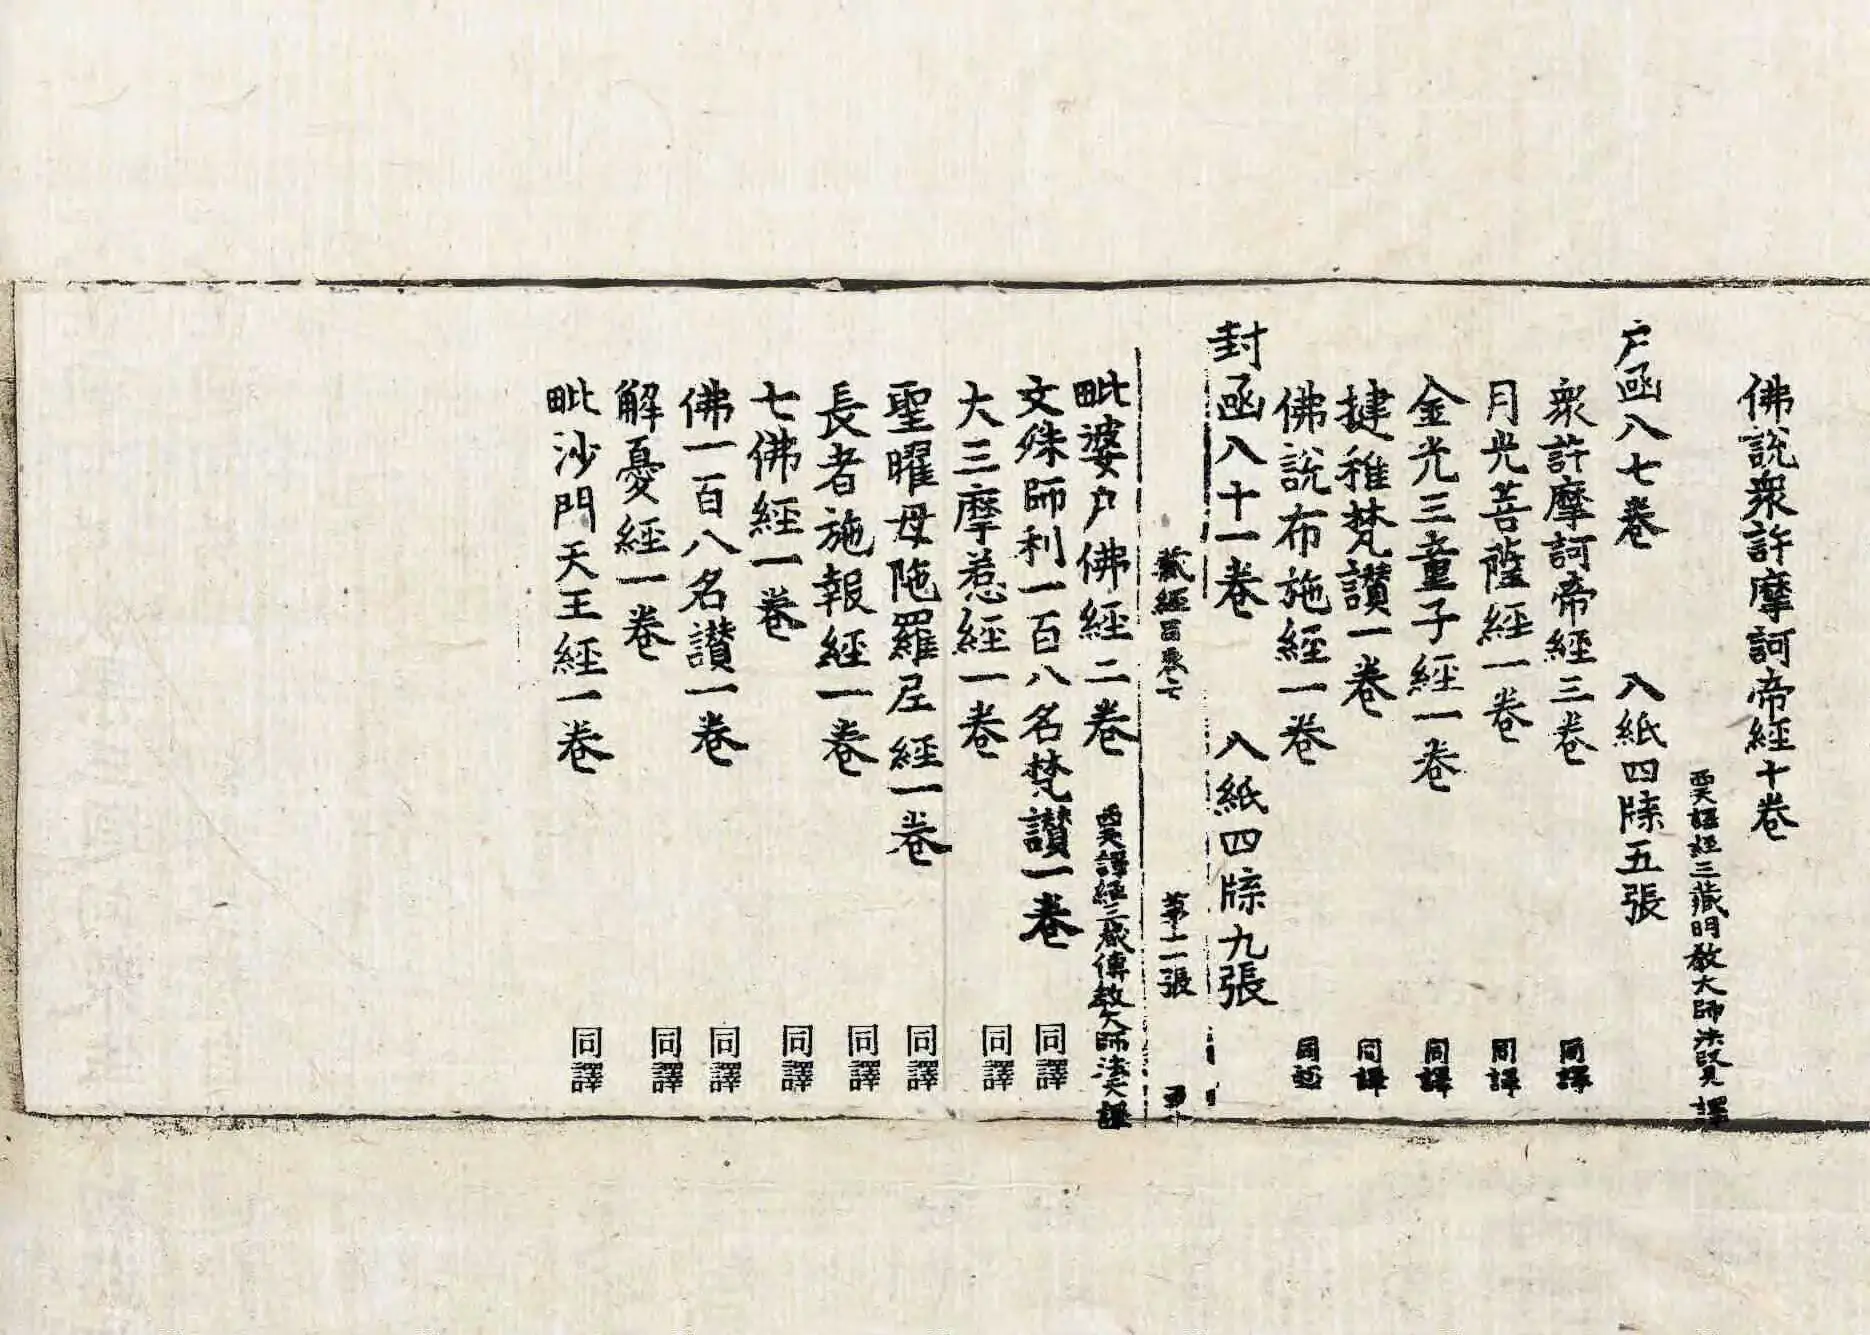 佛說衆許摩訶帝經十卷
西天譯經三藏明教大師法賢譯
户函八七卷 八紙四牍五張
衆許摩訶帝經三卷 同譯
月光菩薩經一卷 同譯
金光三童子經一卷 同譯
揵稚梵讃一卷 同譯
佛說布施經一卷 同
封函八十一卷 八紙四牍九張
藏經目 第十二張
毗婆尸佛經二卷 西天譯經三藏傳教大師法天譯
文殊師利一百八名梵讃一卷 同譯
大三摩惹經一卷 同譯
聖曜母陁羅尼經一卷 同譯
長者施報經一卷 同譯
七佛經一卷 同譯
佛一百八名讃一卷 同譯
解憂經一卷 同譯
毗沙門天王經一卷 同譯